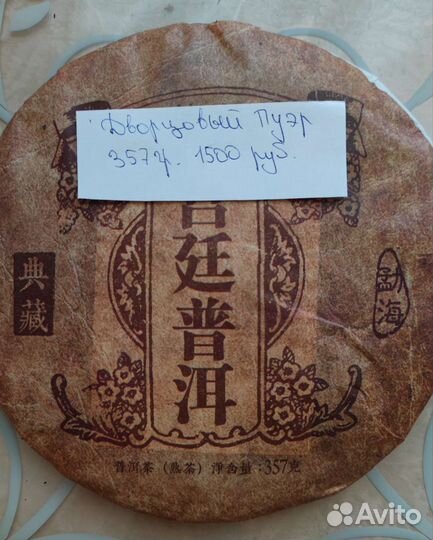 Дворцовый Пуэр
357г. 1500 руб.
宫廷普洱
典藏
勐海
普洱茶（熟茶）净含量：357克
Avito